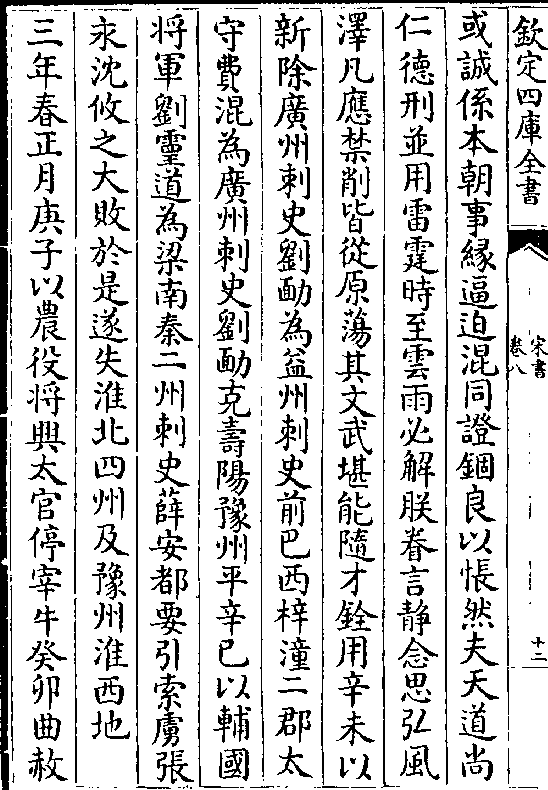 欽定四庫全書
宋書
卷八
十三
或誠係本朝事緣逼迫混同證錮良以悵然夫天道尚
仁德刑並用雷霆時至雲雨必解朕眷言静念思弘風
澤凡應禁削皆從原蕩其文武堪能隨才銓用辛未以
新除廣州刺史劉勔為益州刺史前巴西梓潼二郡太
守費混為廣州刺史劉勔克壽陽豫州平辛巳以輔國
將軍劉靈道為梁南秦二州刺史薛安都要引索虜張
永沈攸之大敗於是遂失淮北四州及豫州淮西地
三年春正月庚子以農役将興太官停宰牛癸卯曲赦